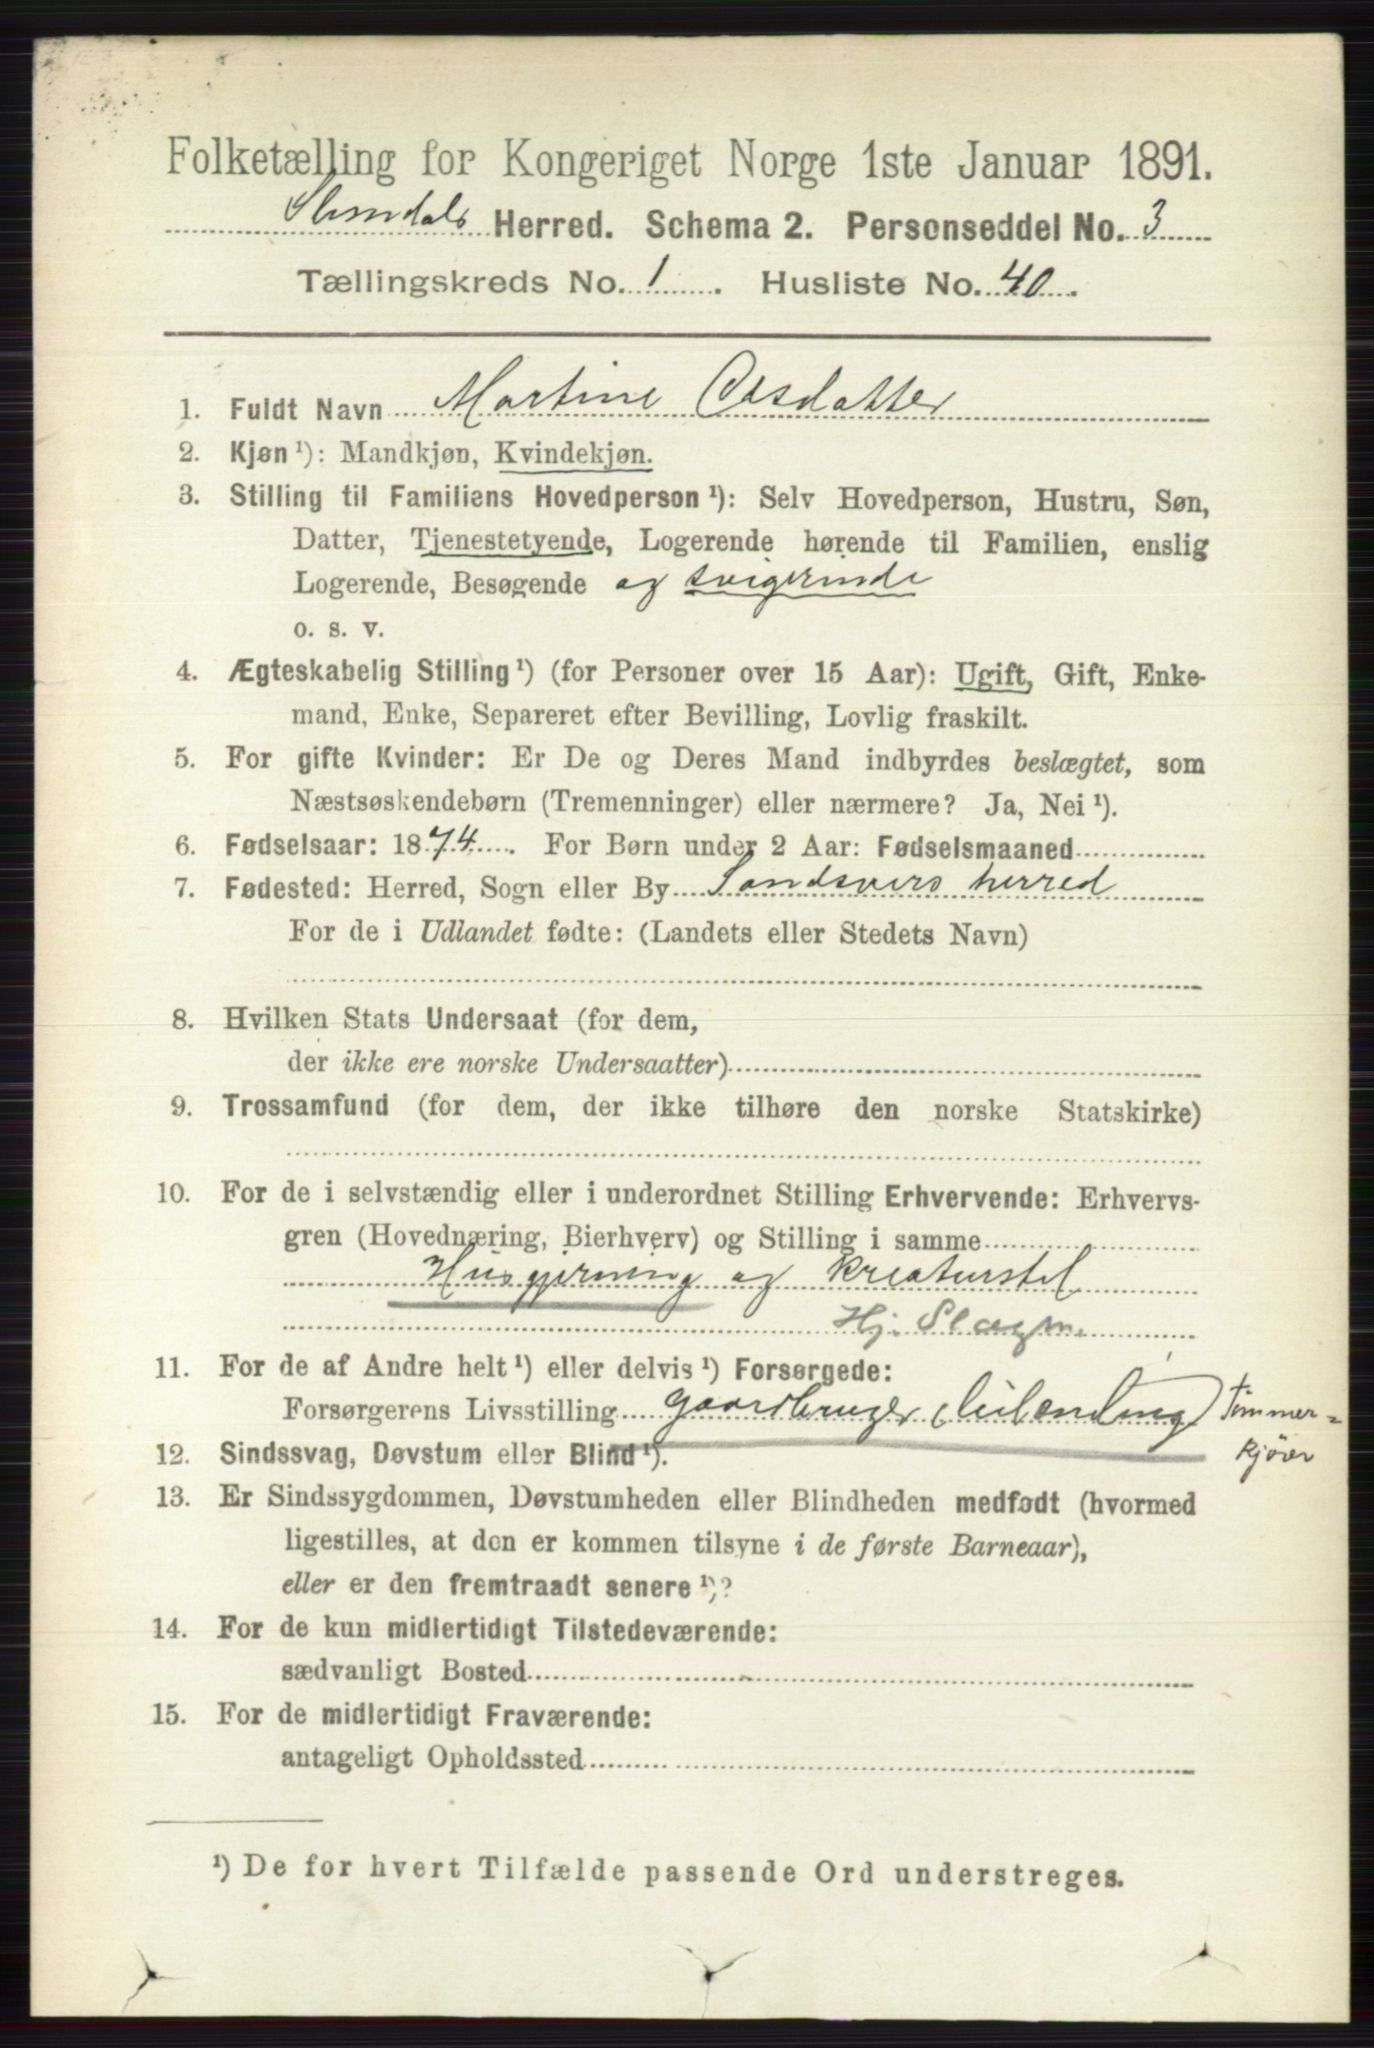 Folketælling for Kongeriget Norge 1ste Januar 1891.
Slemdals Herred. Schema 2. Personseddel No. 3
Tællingskreds No. 1. Husliste No. 40.
1. Fuldt Navn Martine Olsdatter
2. Kjøn ¹): Mandkjøn, Kvindekjøn.
3. Stilling til Familiens Hovedperson ¹): Selv Hovedperson, Hustru, Søn,
Datter, Tjenestetyende, Logerende hørende til Familien, enslig
Logerende, Besøgende og svigerinde
o. s. v.
4. Ægteskabelig Stilling ¹) (for Personer over 15 Aar): Ugift, Gift, Enke-
mand, Enke, Separeret efter Bevilling, Lovlig fraskilt.
5. For gifte Kvinder: Er De og Deres Mand indbyrdes beslægtet, som
Næstsøskendebørn (Tremenninger) eller nærmere? Ja, Nei ¹).
6. Fødselsaar: 1874. For Børn under 2 Aar: Fødselsmaaned
7. Fødested: Herred, Sogn eller By Sandsvers herred
For de i Udlandet fødte: (Landets eller Stedets Navn)
8. Hvilken Stats Undersaat (for dem,
der ikke ere norske Undersaatter)
9. Trossamfund (for dem, der ikke tilhøre den norske Statskirke)
10. For de i selvstændig eller i underordnet Stilling Erhvervende: Erhvervs-
gren (Hovednæring, Bierhverv) og Stilling i samme
Husgjerning og Kreaturstel
Hj. Slægtn.
11. For de af Andre helt ¹) eller delvis ¹) Forsørgede:
Forsørgerens Livsstilling Gaardbruger, Leilending Tømmer-
kjører
12. Sindssvag, Døvstum eller Blind ¹).
13. Er Sindssygdommen, Døvstumheden eller Blindheden medfødt (hvormed
ligestilles, at den er kommen tilsyne i de første Barneaar),
eller er den fremtraadt senere ¹)?
14. For de kun midlertidigt Tilstedeværende:
sædvanligt Bosted
15. For de midlertidigt Fraværende:
antageligt Opholdssted
¹) De for hvert Tilfælde passende Ord understreges.